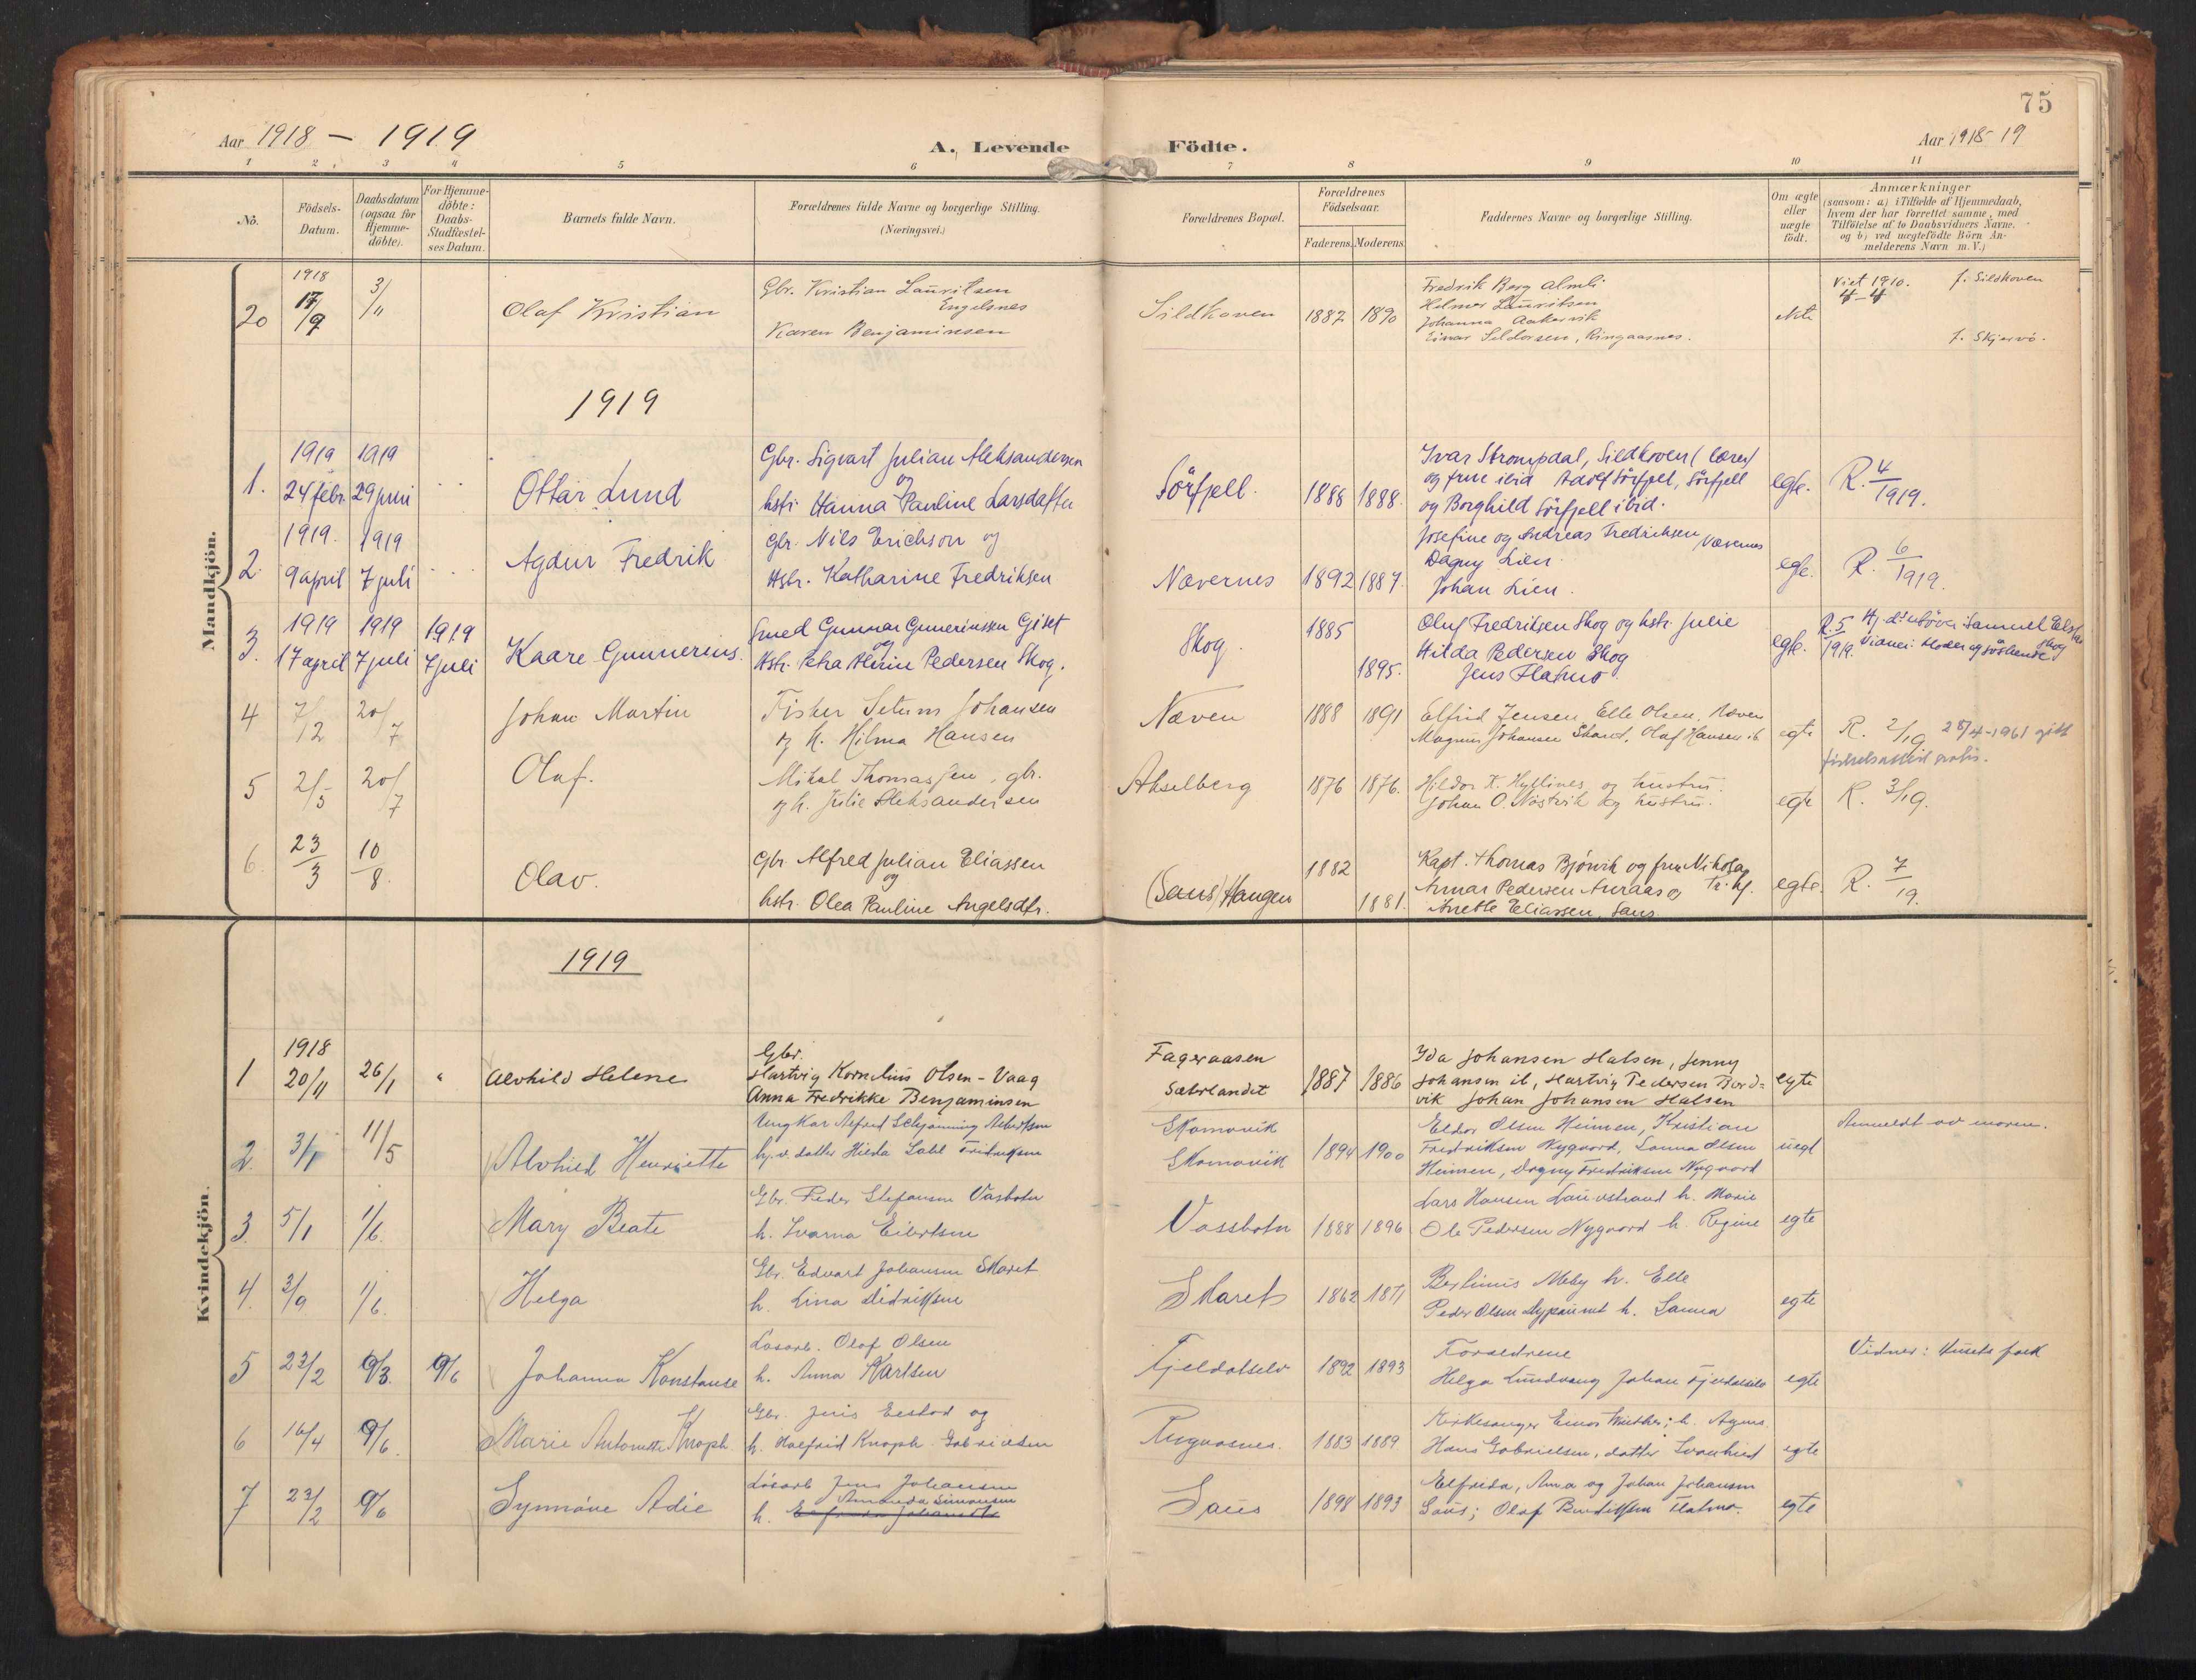 75
Aar 1918 — 1919
A. Levende Födte.
Aar 1918-19
1 2 3 4 5 6 7 8 9 10 11
No.
Födsels-Datum.
Daabsdatum (ogsaa for Hjemme-döbte).
For Hjemme-döbte: Daabs-Stadfæstel-ses Datum.
Barnets fulde Navn.
Forældrenes fulde Navne og borgerlige Stilling.
(Næringsvei.)
Forældrenes Bopæl.
Forældrenes Födselsaar.
Faderens. Moderens.
Faddernes Navne og borgerlige Stilling.
Om ægte eller uægte födt.
Anmærkninger
(saasom: a) i Tilfælde af Hjemmedaab,
hvem der har forrettet samme, med
Tilföielse af to Daabsvidners Navne.
og b) ved uægtefödte Börn An-
melderens Navn m. V.)
Mandkjön.
1918
20 17/9 3/11 Olaf Kristian
Gbr. Kristian Lauritsen
Engelsnes
Karen Benjaminsen
Sildhaven 1887 1890
Fredrik Berg Almli
Helmer Lauritsen
Johanna Aakervik
Einar Sildorsen, Ringaasnes.
ekte
Viet 1910. f. Sildhoven
4-4
f. Skjervö.
1919
1919 1919
1. 24 febr. 29 juni Ottar Lund
Gbr. Sigvart Julian Aleksandersen
og
hstr. Hanna Pauline Larsdatter
Sörfjell. 1888 1888.
Ivar Strompdal, Sildhoven (lærer)
og frue ibid Adolf Sörfjell, Sörfjell
og Borghild Sörfjell ibid.
egte. R. 4/1919.
1919. 1919
2. 9 april 7 juli Agdur Fredrik
Gbr. Nils Erichson og
Hstr. Katharine Fredriksen
Nævernes 1892 1887.
Josefine og Andreas Fredriksen, Nævernes
Dagny Lien.
Johan Lien.
egte. R. 6/1919.
1919 1919 1919
3. 17 april 7 juli 7 juli Kaare Gunnerius.
Smed Gunnar Gunneriussen Giset
og
Hstr. Petra Alvine Pedersen Skog.
Skog. 1885 1895.
Oluf Fredriksen Skog og hstr. Julie
Hilda Pedersen Skog
Jens Flatmo.
egte. R. 5/1919.
4 7/12 20/7 Johan Martin
Fisker Seturn Johansen
og h. Hilma Hansen
Næven 1888 1891
Elfrid Jensen, Elle Olsen, Næven
Magnus Johansen Skaret, Olaf Hansen ib.
egte R. 2/19
5 2/5 20/7 Olaf.
Mikal Thomassen, gbr.
og h. Julie Aleksandersen
Akselberg 1876 1876.
Hildor K. Hyllines og hustru.
Johan O. Nöstvik og hustru.
egte R. 3/19.
6. 23/3 10/8. Olav.
Gbr. Alfred Julian Eliassen
og
hstr. Olea Pauline Angelsdtr.
(Saus) Haugen 1882 1881.
Kapt. Thomas Bjørvik og frue Nikolea
Annar Pedersen Auraas og Tr. hj.
Anette Eliassen, Saus
egte. R. 7/19.
Kvindekjön.
1919
1918
1 20/11 26/1 " Alvhild Helene
Gbr.
Hartvig Kornelius Olsen - Vaag
Anna Fredrikke Benjaminsen
Fageraasen
Sæterlandet 1887 1886
Ida Johansen Halsen, Jenny
Johansen ib, Hartvig Pedersen Bord-
vik Johan Johansen Halsen
egte
2. 3/1 11/5 Alvhild Henriette
Ungkar Alfred Schjønning Albertsen
hj.v. datter Hilda Dahl Fredriksen
Skomovik
Skomovik 1894 1900
Eldor Olsen Heimen, Kristian
Fredriksen Nygaard, Sanna Olsen
Heimen, Dagny Fredriksen Nygaard
uegt
Anmeldt av moren.
3. 5/1 1/6. Mary Beate
Gbr. Peder Stefansen Vasbotn
h. Ivarna Eilertsen
Vassbotn 1888 1896
Lars Hansen Lauvstrand h. Marie
Ole Pedersen Nygaard h. Regine
egte
4. 3/9 1/6. Helga
Gbr. Edvart Johansen Skaret
h. Lina Didriksen
Skaret 1862 1877
Berlinus Meby h. Elle
Peder Olsen h. Sanna
egte
5 23/2 9/3. 9/6 Johanna Konstanse
Løsarb. Olaf Olsen
h. Anna Karlsen
Fjeldalselv 1892 1893
Forældrene
Helga Lundvang Johan Fjeldalselv
egte
Vidner: Husets folk
6 16/4 9/6. Marie Antonette Knoph
Gbr. Jens Eestad og
h. Halfrid Knoph Gabrielsen
Ringaasnes. 1883 1889.
Kirkesanger Einar Winther; h. Agnes.
Hans Gabrielsen, datter Svanhild
egte
7 23/2 9/6 Synnöve Adie
Løsarb Jens Johansen
Amanda Simonsen
h.
Saus 1898 1893
Elfrida, Anna og Johan Johansen
Saus; Olaf Bendiksen Flatmo.
egte